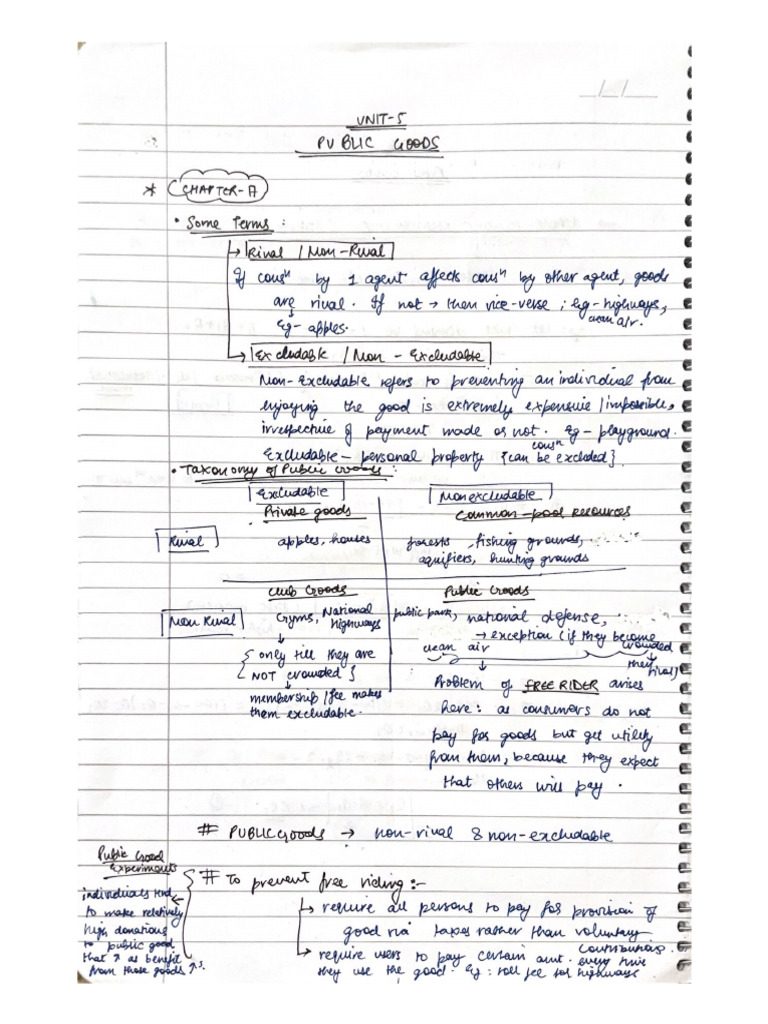 __/__/____
UNIT-5
PUBLIC GOODS
* CHAPTER-A
• Some Terms :
→ Rival / Non-Rival
If consⁿ by 1 agent affects consⁿ by other agent, goods
are rival. If not → then vice-verse ; Eg- highways,
clean air.
Eg- apples.
→ Excludable / Non - Excludable
Non-Excludable refers to preventing an individual from
enjoying the good is extremely expensive / impossible,
irrespective of payment made or not. Eg - playground.
Excludable - personal property {consⁿ can be excluded}.
• Taxonomy of Public Goods :
Excludable Nonexcludable
Private goods Common-pool resources
Rival apples, houses forests, fishing grounds,
aquifiers, hunting grounds
Club Goods Public Goods
Non Rival Gyms, National highways public park, national defense,
→ exception (if they become crowded → they rival)
clean air
{ only till they are
NOT crowded }
membership / fee makes
them excludable.
Problem of FREE RIDER arises
here : as consumers do not
pay for goods but get utility
from them, because they expect
that others will pay.
# PUBLIC GOODS → non-rival & non-excludable
Public Good
Experiments
individuals tend
to make relatively
high donations
to public good
that ↑ as benefit
from those goods ↑s.
# To prevent free riding :-
→ require all persons to pay for provision of
good via taxes rather than voluntary
contributions.
→ require users to pay certain amt. every time
they use the good. Eg : toll fee for highways